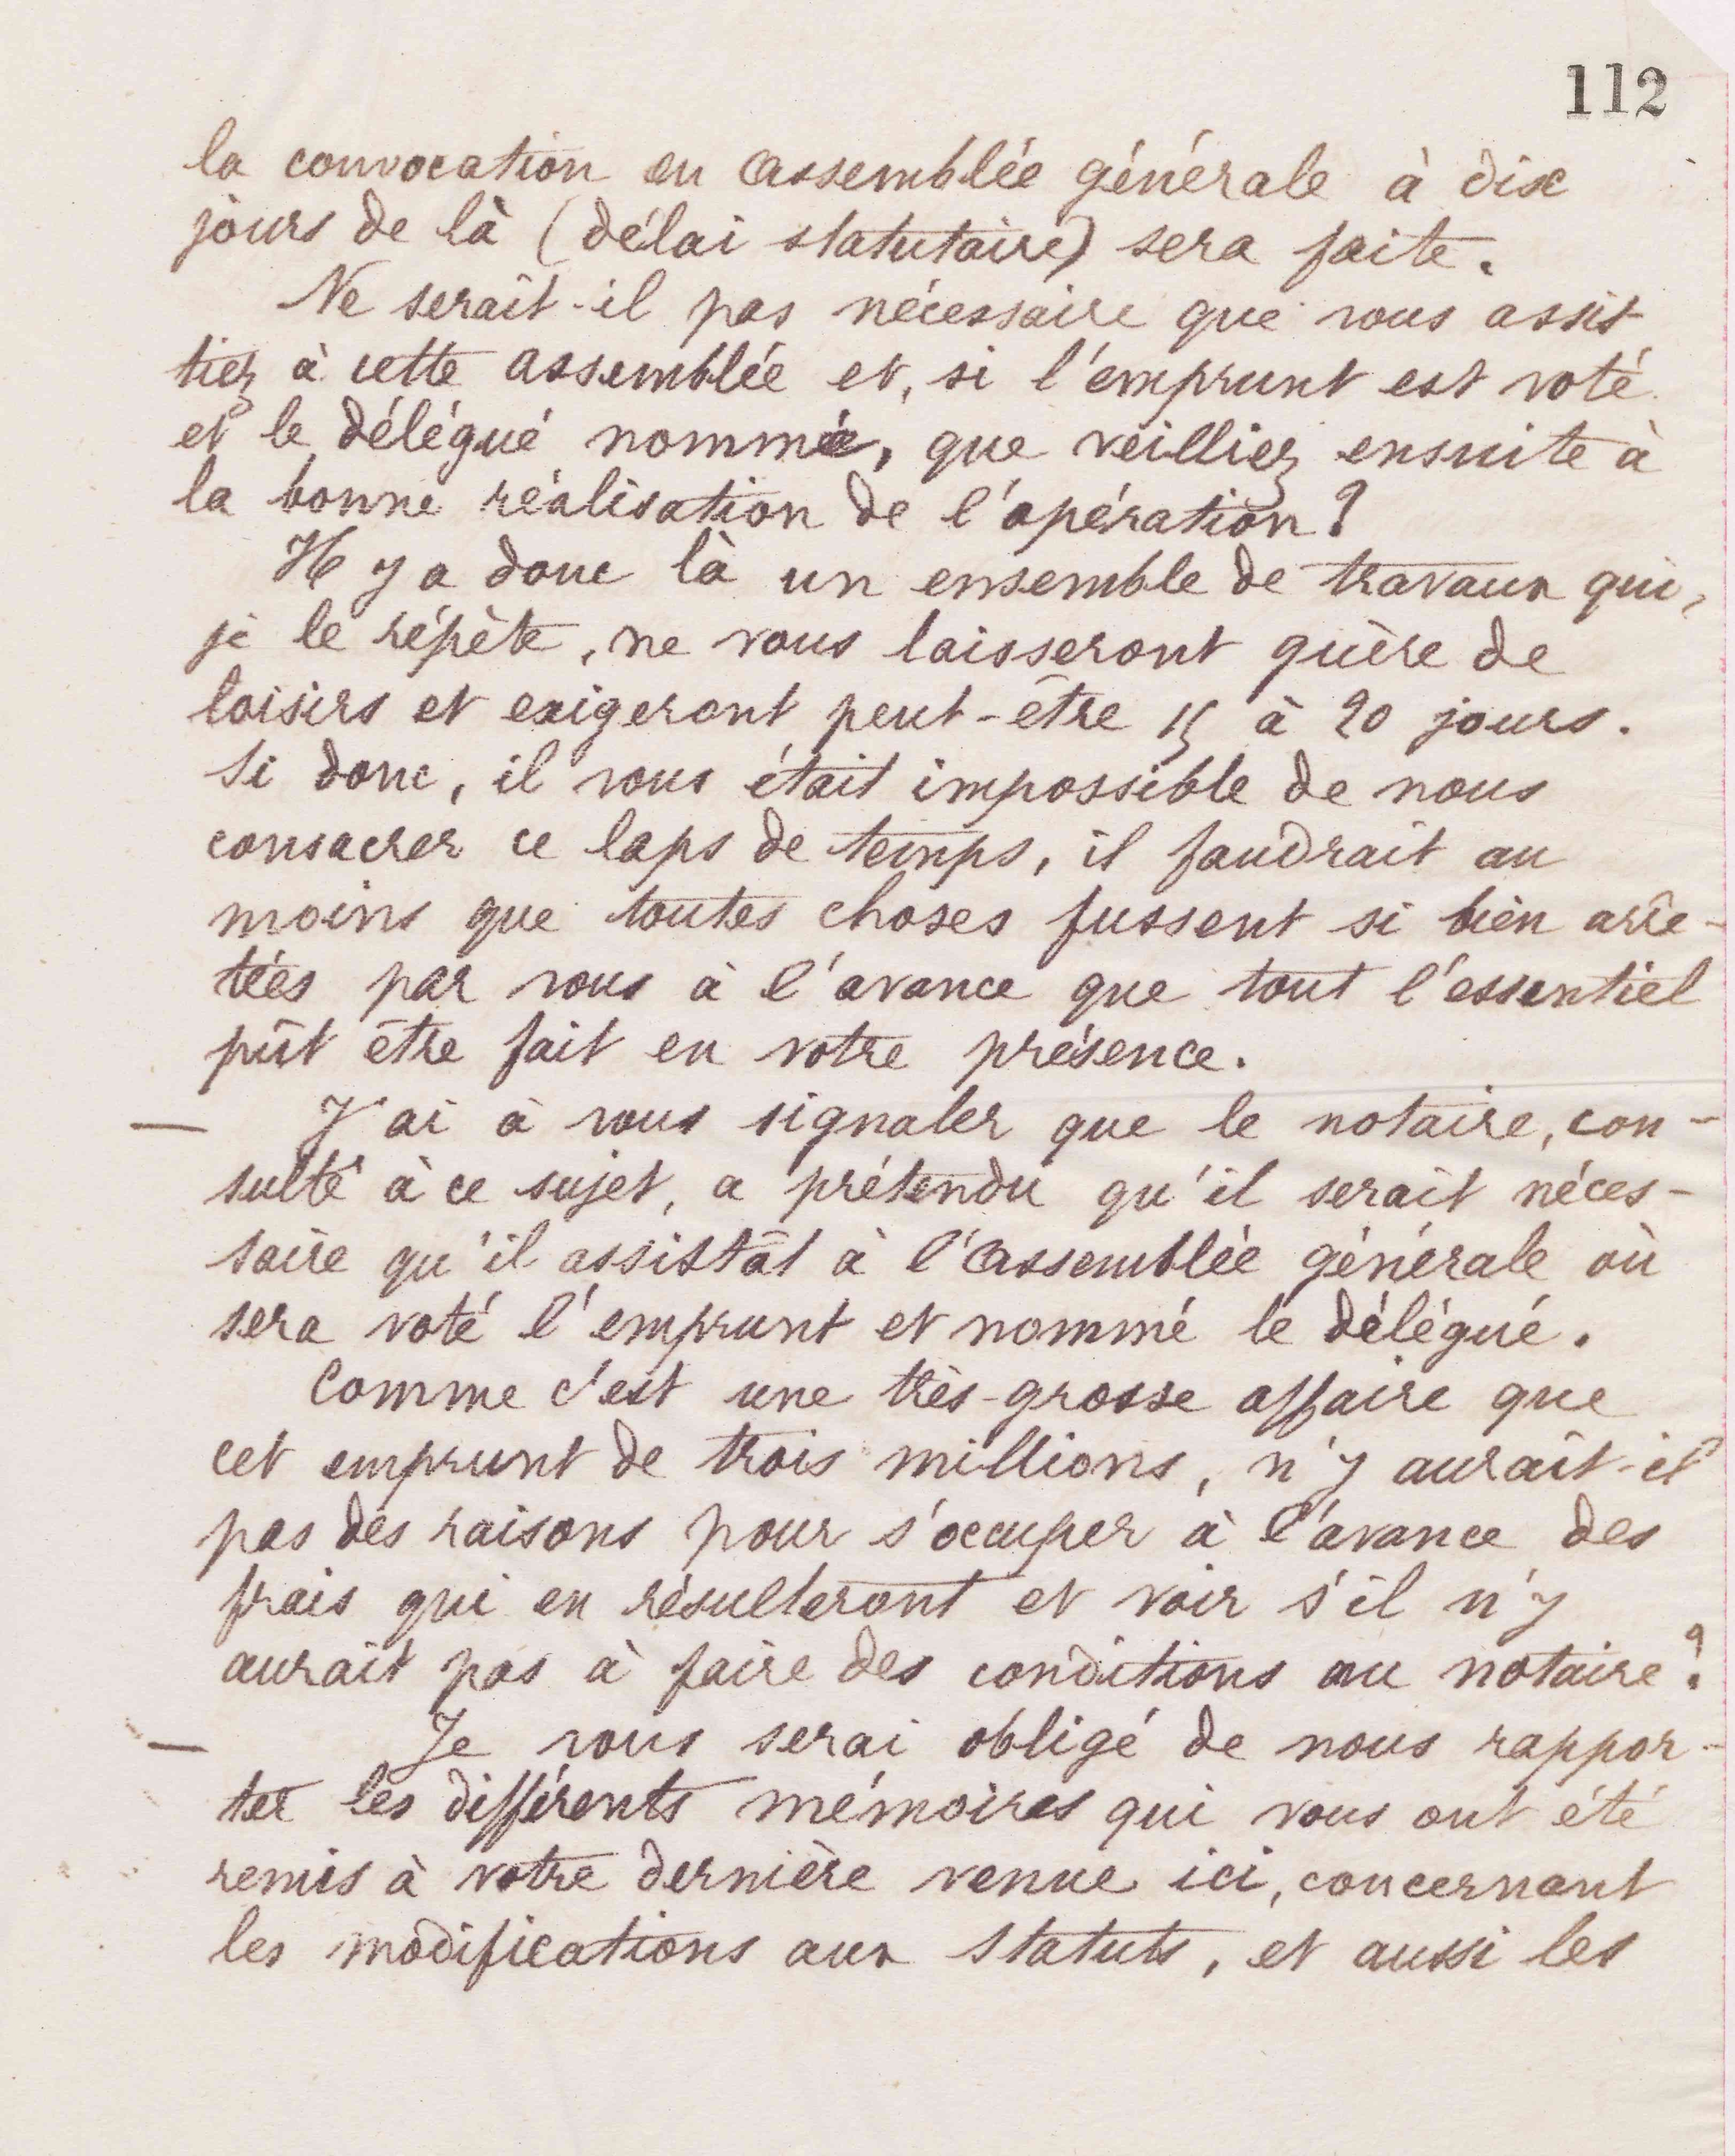 112
la convocation en Assemblée générale à dix
jours de là (délai statutaire) sera faite.
Ne serait-il pas nécessaire que vous assis
tiez à cette assemblée et, si l'emprunt est voté
et le délégué nommé, que veilliez ensuite à
la bonne réalisation de l'opération ?
Il y a donc là un ensemble de travaux qui,
je le répète, ne vous laisseront guère de
loisirs et exigeront peut-être 15 à 20 jours.
Si donc, il vous était impossible de nous
consacrer ce laps de temps, il faudrait au
moins que toutes choses fussent si bien arrê-
tées par vous à l'avance que tout l'essentiel
pût être fait en votre présence.
— J'ai à vous signaler que le notaire, con-
sulté à ce sujet, a prétendu qu'il serait néces-
saire qu'il assistât à l'Assemblée générale où
sera voté l'emprunt et nommé le délégué.
Comme c'est une très-grosse affaire que
cet emprunt de trois millions, n'y aurait-il
pas des raisons pour s'occuper à l'avance des
frais qui en résulteront et voir s'il n'y
aurait pas à faire des conditions au notaire ?
— Je vous serai obligé de nous rappor-
ter les différents mémoires qui vous ont été
remis à votre dernière venue ici, concernant
les modifications aux Statuts, et aussi les